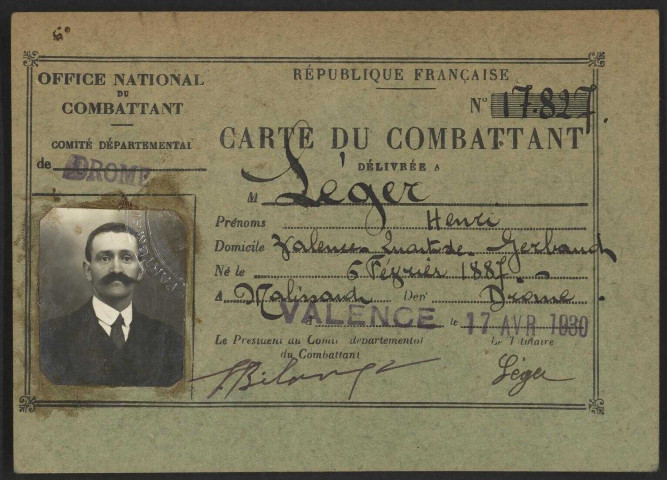 OFFICE NATIONAL
DU
COMBATTANT
COMITÉ DÉPARTEMENTAL
de DROME
RÉPUBLIQUE FRANÇAISE
N° 17.827
CARTE DU COMBATTANT
DÉLIVRÉE A
M Léger
Prénoms Henri
Domicile Valence Quart. de Gerland
Né le 6 Février 1887
A Malissard Dep^t Drome
A VALENCE le 17 AVR 1930
Le Président du Comité départemental
du Combattant
Le Titulaire
Léger